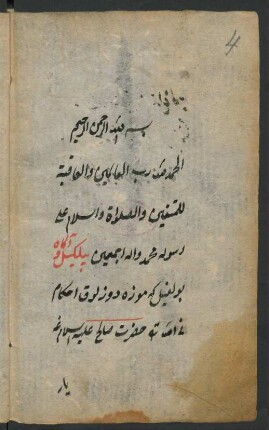 4
بسم الله الرحمن الرحیم
الحمد لله رب العالمین والعاقبة
للمتقین والصلاة والسلام علی
رسوله محمد واله اجمعین بیلکیل و آکاه
بولغیل که موزه دوزلوق احکام
حضرت صالح علیه السلام
یار